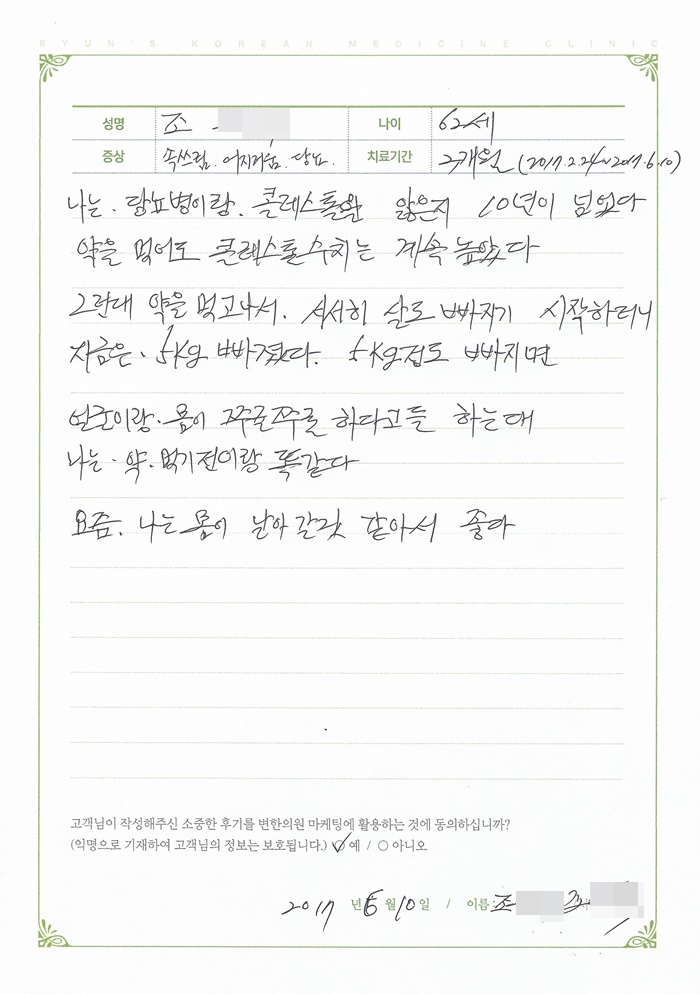 BYUN'S KOREAN MEDICINE CLINIC
성명 조 나이 62세
증상 속쓰림. 어지러움. 당뇨. 치료기간 2개월 (2017.2.24~2017.6.10)
나는. 당뇨병이랑. 콜레스톨완 앓은지 10년이 넘었다
약을 먹어도 콜레스톨수치는 계속 높았다
그런대 약을 먹고나서. 서서히 살로 빠자기 시작하더니
지금은. 5kg 빠졌다. 5kg정도 빠지면
얼굴이랑. 몸이 쭈글쭈글 하다고들 하는대
나는. 약. 먹기전이랑 똑같다
요즘. 나는 몸이 날아갈것 같아서 좋다
고객님이 작성해주신 소중한 후기를 변한의원 마케팅에 활용하는 것에 동의하십니까?
(익명으로 기재하여 고객님의 정보는 보호됩니다.) 예 / 아니오
2017 년 6 월 10 일 / 이름: 조